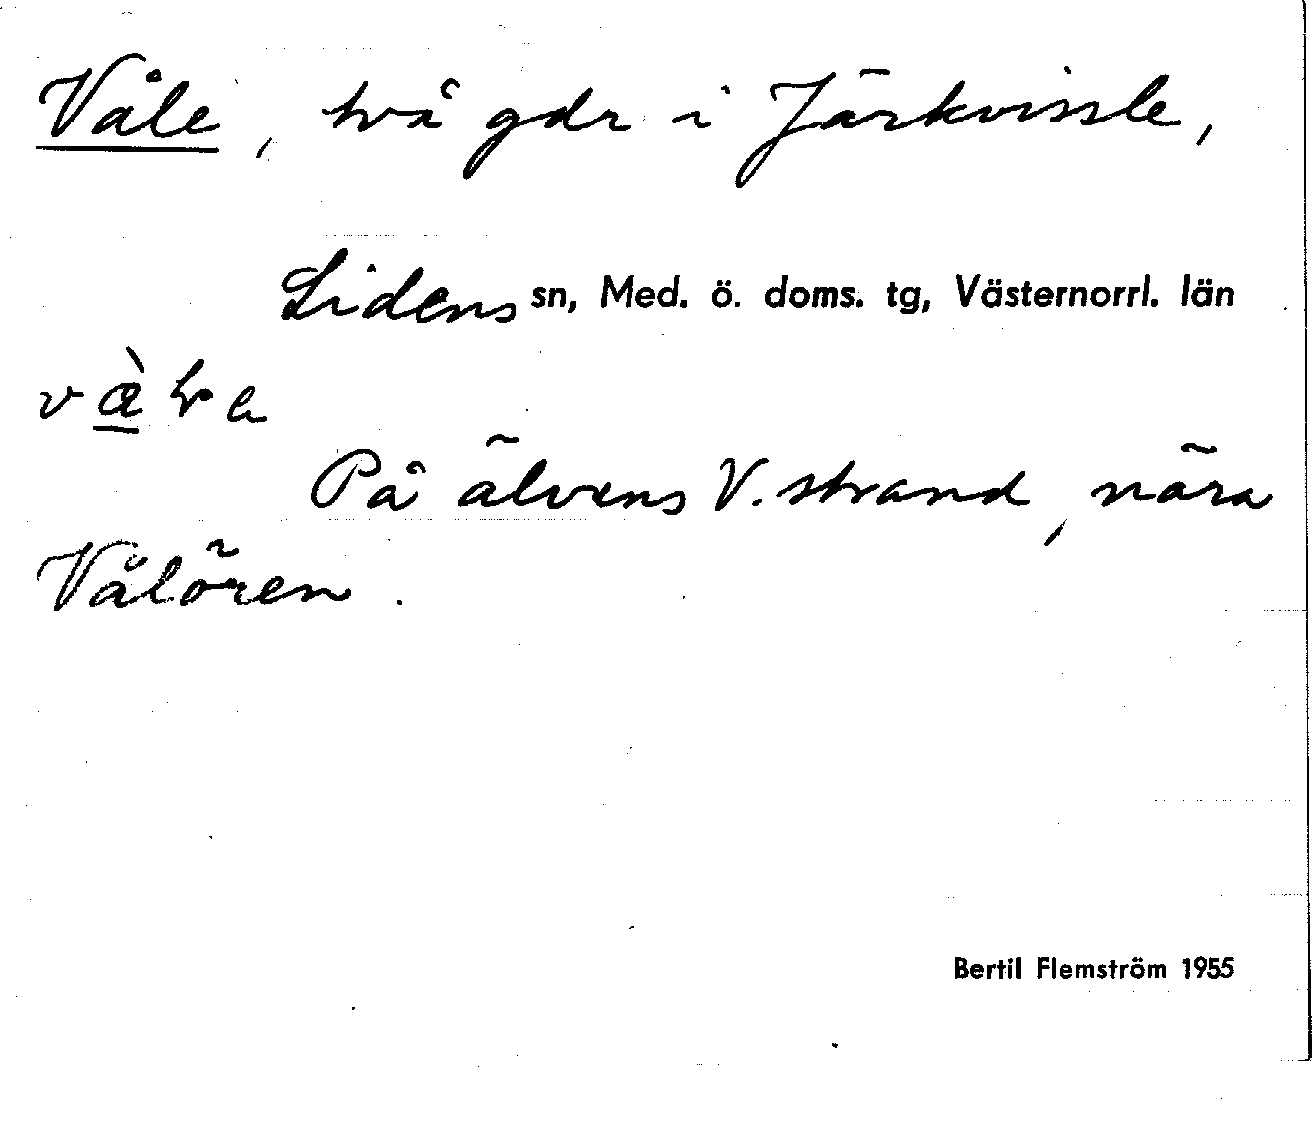 Våle, två gdr i Järkvissle,
Lidens sn, Med. ö. doms. tg, Västernorrl. län
På älvens V. strand, nära
Vålören.
Bertil Flemström 1955